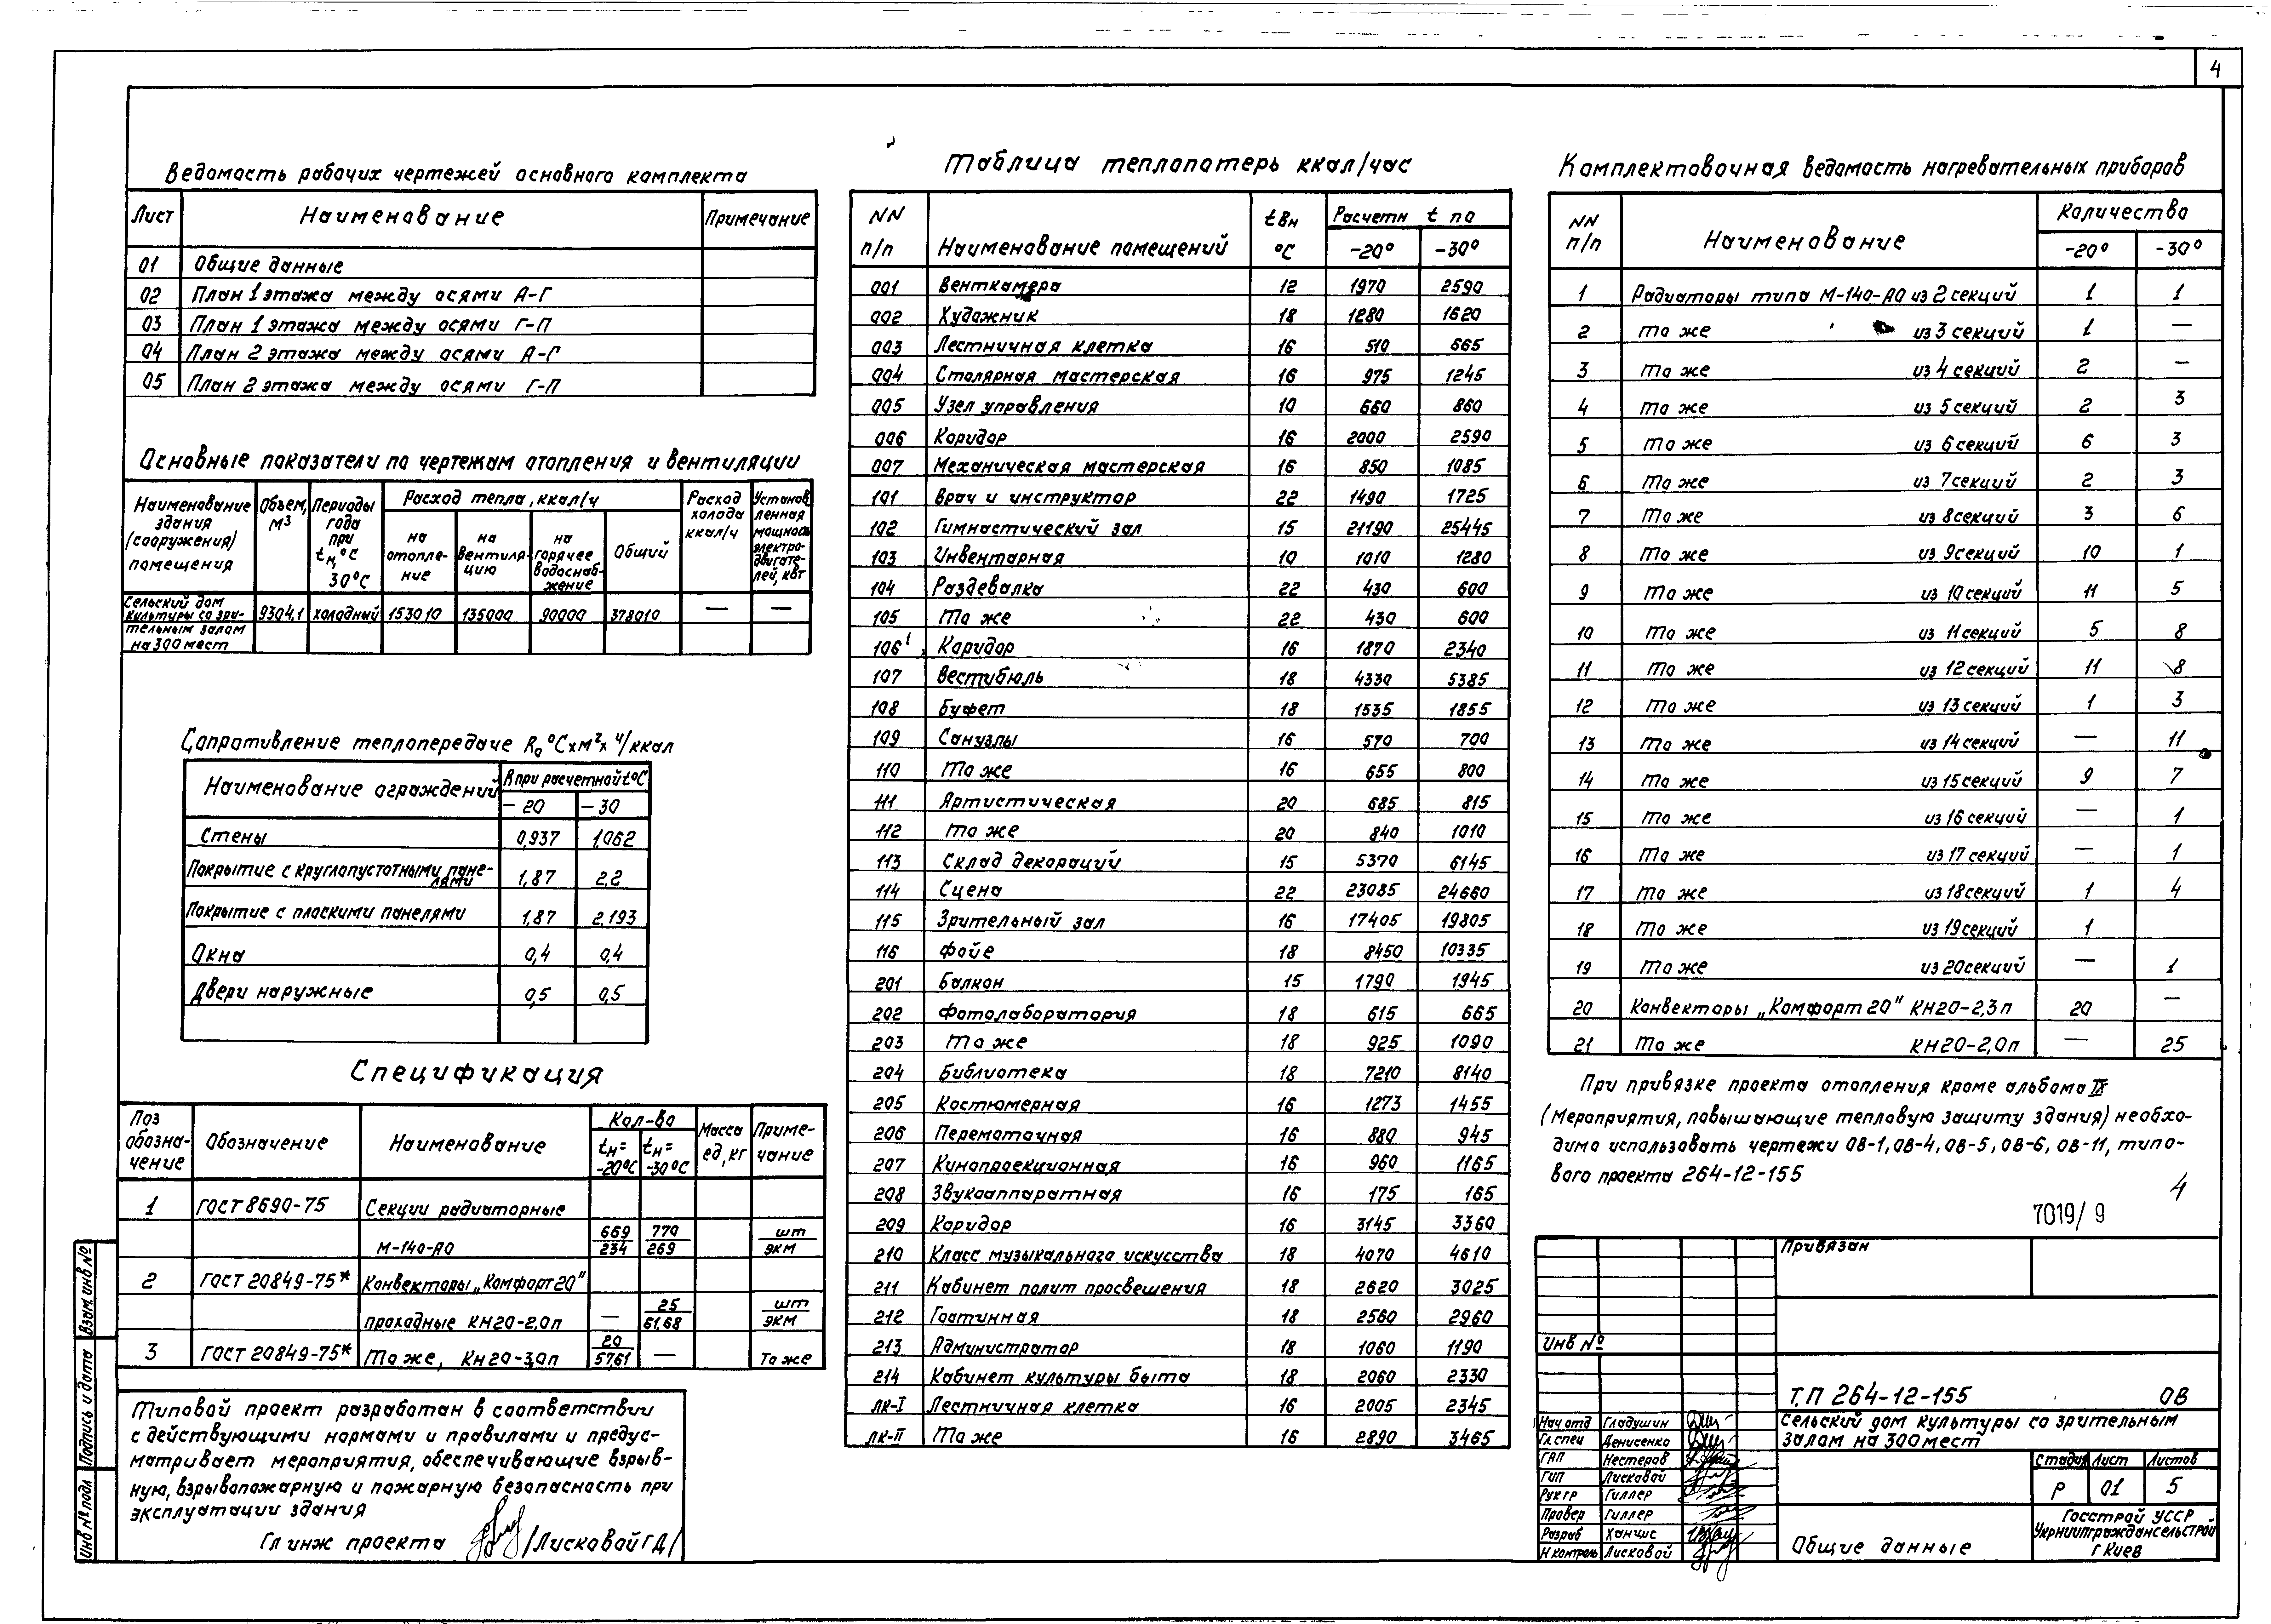 4
Ведомость рабочих чертежей основного комплекта
Лист Наименование Примечание
01 Общие данные
02 План 1 этажа между осями А-Г
03 План 1 этажа между осями Г-П
04 План 2 этажа между осями А-Г
05 План 2 этажа между осями Г-П
Основные показатели по чертежам отопления и вентиляции
Наименование здания (сооружения) помещения
Объем, м³
Периоды года при tн, °С 30°С
Расход тепла, ккал/ч
на отопле-ние
на вентиля-цию
на горячее водоснаб-жение
Общий
Расход холода ккал/ч
Установленная мощность электро-двигате-лей, квт
Сельский дом культуры со зри-тельным залом на 300 мест 9304,1 холодный 153010 135000 90000 378010 — —
Сопротивление теплопередаче R₀ °С×м²×ч/ккал
Наименование ограждений R при расчетной t°С
-20 -30
Стены 0,937 1,062
Покрытие с круглопустотными пане-лями 1,87 2,2
Покрытие с плоскими панелями 1,87 2,193
Окна 0,4 0,4
Двери наружные 0,5 0,5
Спецификация
Поз обозна-чение Обозначение Наименование Кол-во Масса ед, кг Приме-чание
tн= -20°С tн= -30°С
1 ГОСТ 8690-75 Секции радиаторные
М-140-АО 669/234 770/269 шт/экм
2 ГОСТ 20849-75* Конвекторы „Комфорт 20"
проходные КН20-2,0п — 25/61,68 шт/экм
3 ГОСТ 20849-75* То же, КН20-3,0п 20/57,61 — То же
Типовой проект разработан в соответствии
с действующими нормами и правилами и предус-
матривает мероприятия, обеспечивающие взрыв-
ную, взрывопожарную и пожарную безопасность при
эксплуатации здания
Гл инж проекта /Лисковой Г Д/
Взам инв №
Подпись и дата
Инв № подл
Таблица теплопотерь ккал/час
NN п/п Наименование помещений tвн °С Расчетн t по
-20° -30°
001 Венткамера 12 1970 2590
002 Художник 18 1280 1620
003 Лестничная клетка 16 510 665
004 Столярная мастерская 16 975 1245
005 Узел управления 10 660 860
006 Коридор 16 2000 2590
007 Механическая мастерская 16 850 1085
101 Врач и инструктор 22 1490 1725
102 Гимнастический зал 15 21190 25445
103 Инвентарная 10 1010 1280
104 Раздевалка 22 430 600
105 То же 22 430 600
106 Коридор 16 1870 2340
107 Вестибюль 18 4330 5385
108 Буфет 18 1535 1855
109 Санузлы 16 570 700
110 То же 16 655 800
111 Артистическая 20 685 815
112 То же 20 840 1010
113 Склад декораций 15 5370 6145
114 Сцена 22 23085 24660
115 Зрительный зал 16 17405 19805
116 Фойе 18 8450 10335
201 Балкон 15 1790 1945
202 Фотолаборатория 18 615 665
203 То же 18 925 1090
204 Библиотека 18 7210 8140
205 Костюмерная 16 1273 1455
206 Перемоточная 16 880 945
207 Кинопроекционная 16 960 1165
208 Звукоаппаратная 16 175 165
209 Коридор 16 3145 3360
210 Класс музыкального искусства 18 4070 4610
211 Кабинет полит просвещения 18 2620 3025
212 Гостинная 18 2560 2960
213 Администратор 18 1060 1190
214 Кабинет культуры быта 18 2060 2330
лк-I Лестничная клетка 16 2005 2345
лк-II То же 16 2890 3465
Комплектовочная ведомость нагревательных приборов
NN п/п Наименование Количества
-20° -30°
1 Радиаторы типа М-140-АО из 2 секций 1 1
2 то же из 3 секций 1 —
3 то же из 4 секций 2 —
4 то же из 5 секций 2 3
5 то же из 6 секций 6 3
6 то же из 7 секций 2 3
7 то же из 8 секций 3 6
8 то же из 9 секций 10 1
9 то же из 10 секций 11 5
10 то же из 11 секций 5 8
11 то же из 12 секций 11 8
12 то же из 13 секций 1 3
13 то же из 14 секций — 11
14 то же из 15 секций 9 7
15 то же из 16 секций — 1
16 то же из 17 секций — 1
17 то же из 18 секций 1 4
18 то же из 19 секций 1
19 то же из 20 секций — 1
20 Конвекторы „Комфорт 20" КН20-2,3п 20 —
21 То же КН20-2,0п — 25
При привязке проекта отопления кроме альбома IX
(Мероприятия, повышающие тепловую защиту здания) необхо-
димо использовать чертежи ОВ-1, ОВ-4, ОВ-5, ОВ-6, ОВ-11, типо-
вого проекта 264-12-155
4
7019/9
Привязан
Инв №
Т.П 264-12-155 ОВ
Сельский дом культуры со зрительным
залом на 300 мест
Нач отд Гладушин
Гл спец Денисенко
ГАП Нестеров
ГИП Лисковой
Рук гр Гиллер
Провер Гиллер
Разраб Ханцис
Н контроль Лисковой
Стадия Лист Листов
Р 01 5
Общие данные
Госстрой УССР
Укрниипграждансельстрой
г Киев